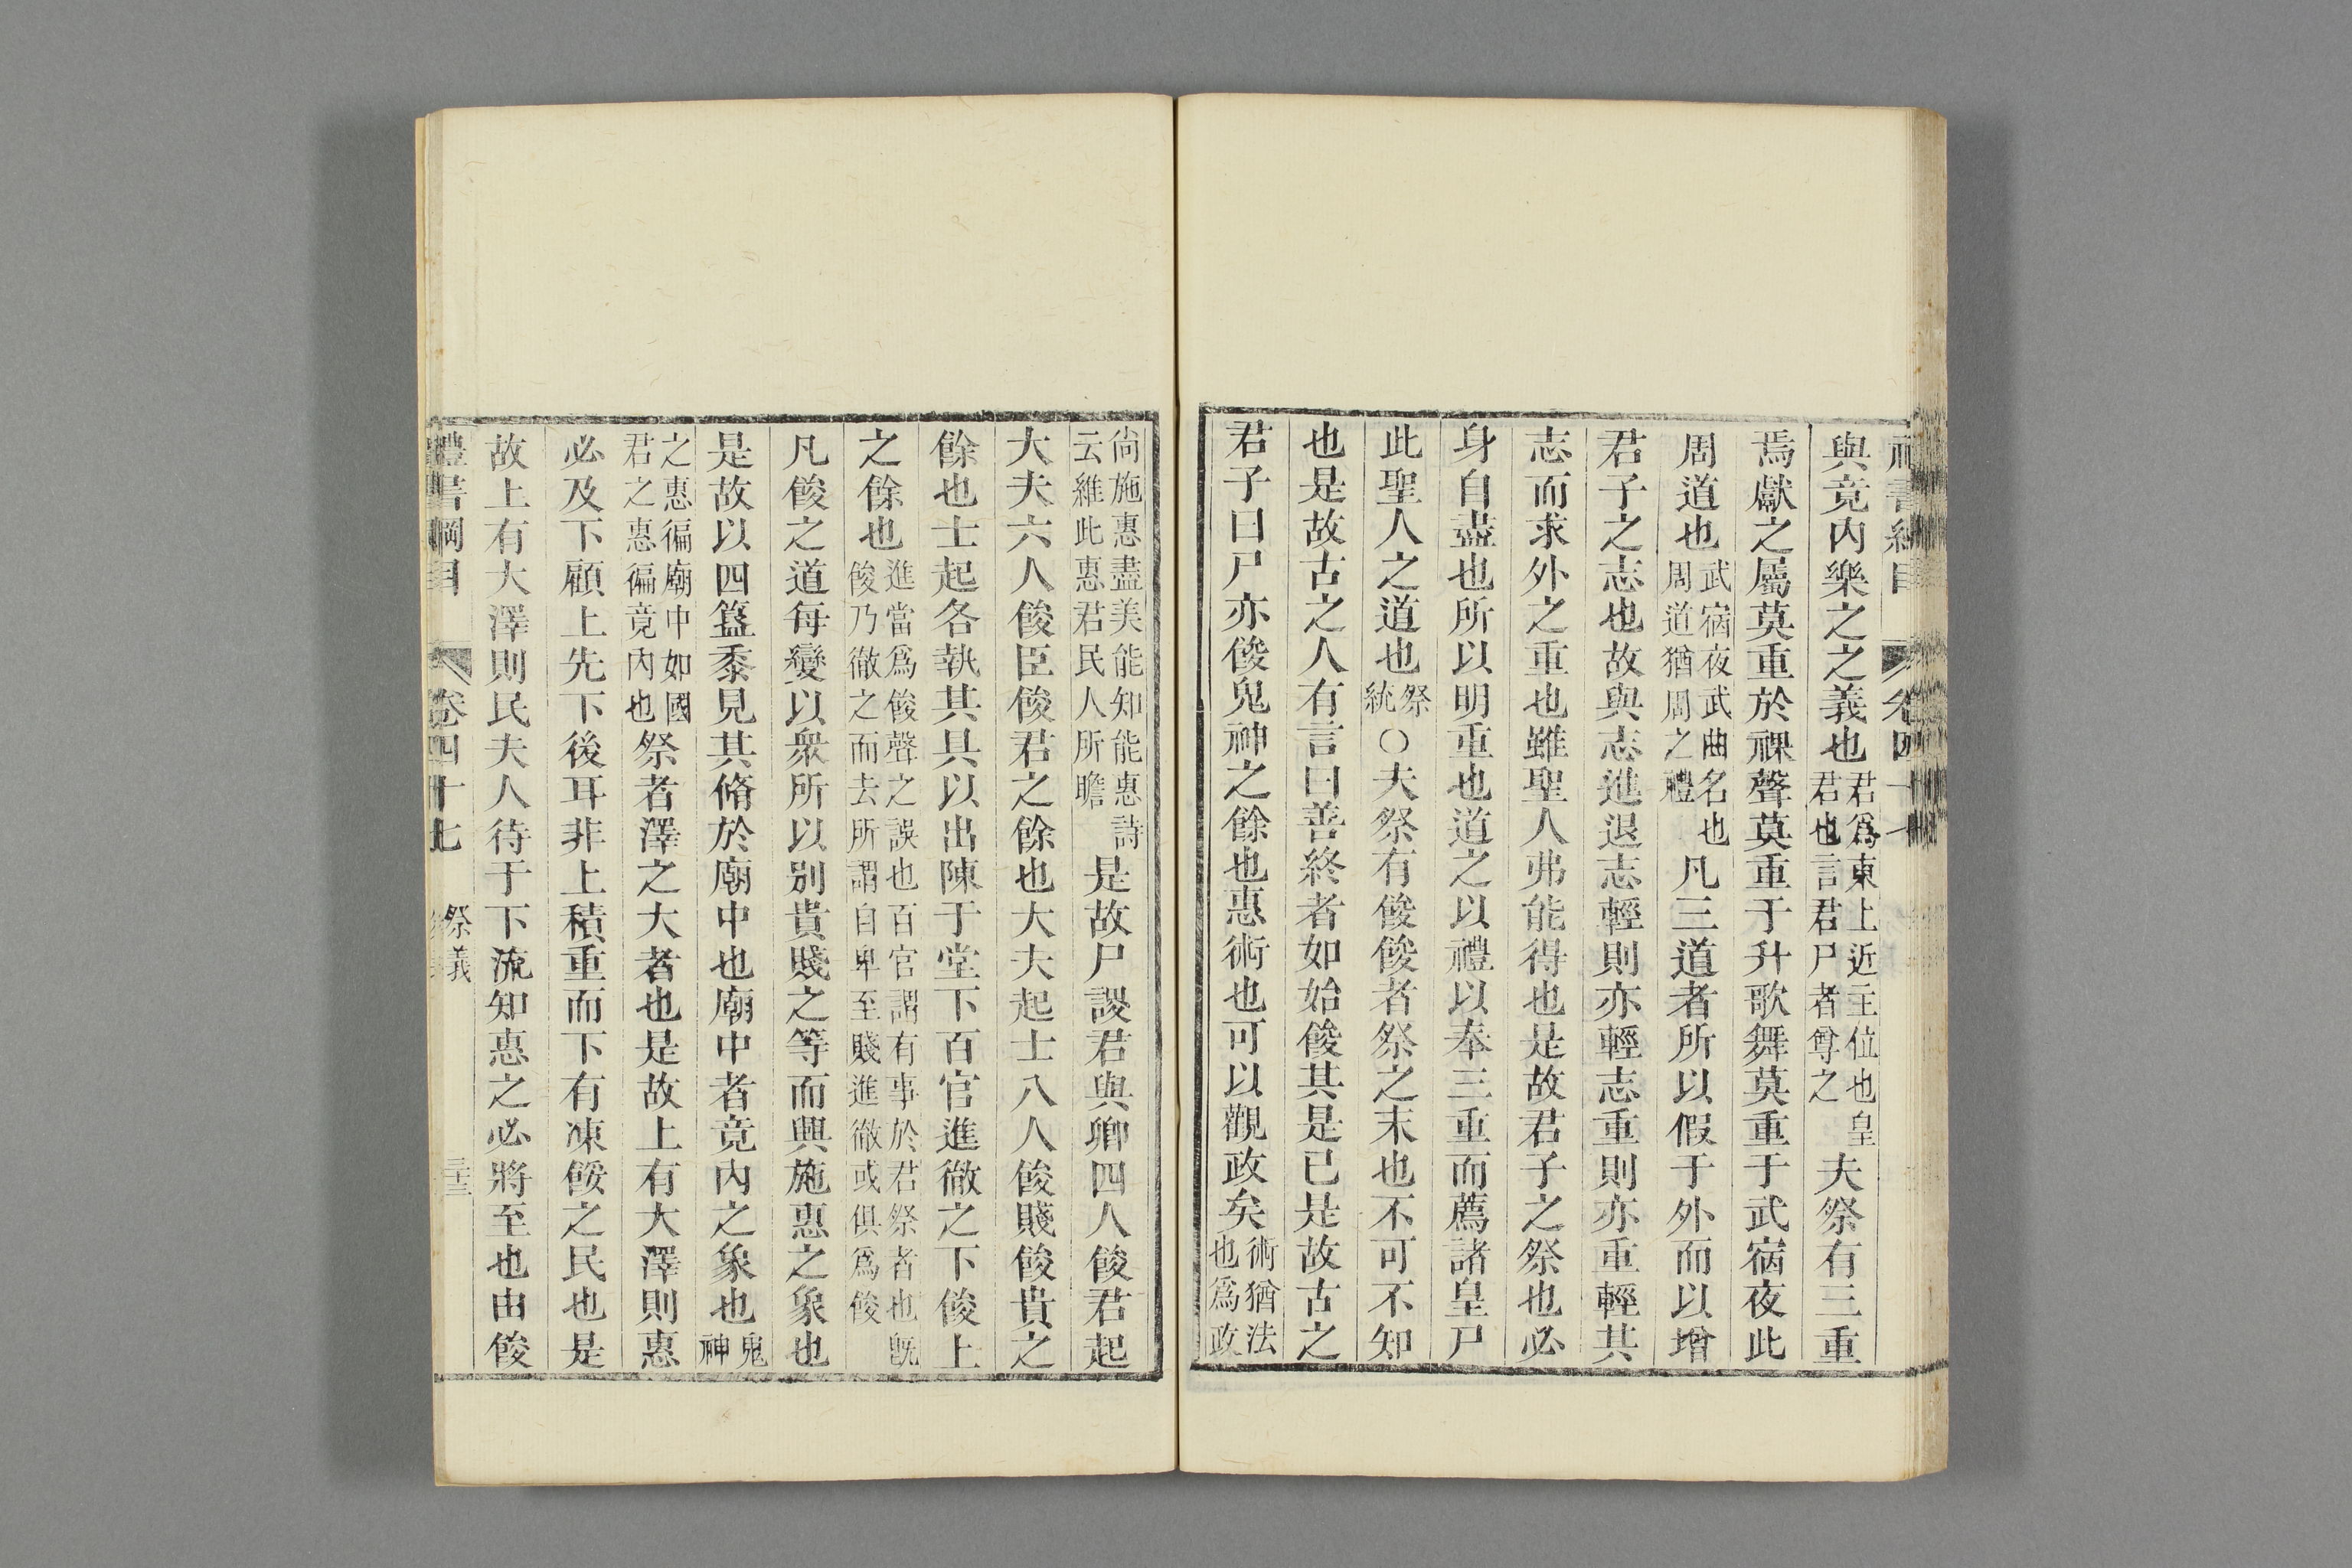 與竟內樂之之義也君爲東上近主位也皇君也言君尸者尊之夫祭有三重
焉獻之屬莫重於祼聲莫重于升歌舞莫重于武宿夜此
周道也武宿夜武曲名也周道猶周之禮凡三道者所以假于外而以增
君子之志也故與志進退志輕則亦輕志重則亦重輕其
志而求外之重也雖聖人弗能得也是故君子之祭也必
身自盡也所以明重也道之以禮以奉三重而薦諸皇尸
此聖人之道也祭統○夫祭有餕餕者祭之末也不可不知
也是故古之人有言曰善終者如始餕其是已是故古之
君子曰尸亦餕鬼神之餘也惠術也可以觀政矣術猶法也爲政
尙施惠盡美能知能惠詩云維此惠君民人所瞻是故尸謖君與卿四人餕君起
大夫六人餕臣餕君之餘也大夫起士八人餕賤餕貴之
餘也士起各執其具以出陳于堂下百官進徹之下餕上
之餘也進當爲餕聲之誤也百官謂有事於君祭者也旣餕乃徹之而去所謂自卑至賤進徹或俱爲餕
凡餕之道每變以衆所以别貴賤之等而興施惠之象也
是故以四簋黍見其脩於廟中也廟中者竟內之象也鬼神
之惠徧廟中如國君之惠徧竟內也祭者澤之大者也是故上有大澤則惠
必及下顧上先下後耳非上積重而下有凍餒之民也是
故上有大澤則民夫人待于下流知惠之必將至也由餕
禮書綱目 卷四十七 祭義 三十三